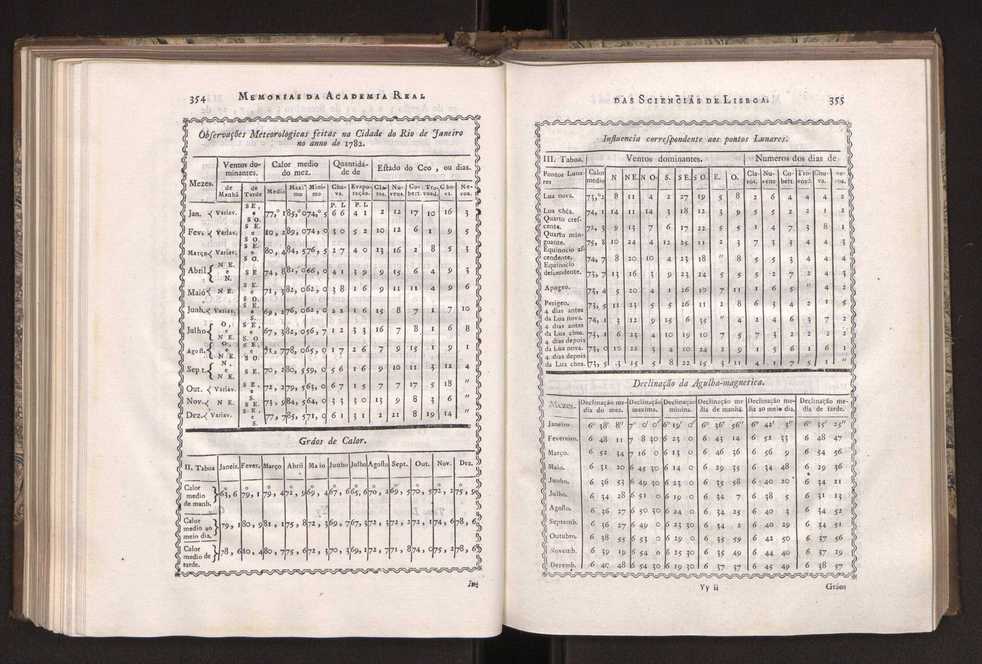 354 MEMORIAS DA ACADEMIA REAL
Observações Meteorologicas feitas na Cidade do Rio de Janeiro
no anno de 1782.
Mezes. Ventos dominantes. Calor medio do mez. Quantidade de Estado do Ceo, ou dias.
de Manhã de Tarde Medio Maximo Minimo Chuva. Evaporação. Claros. Nuvens. Cobert. Trovoad. Chov. Nevoa.
P. L. P. L.
Jan. Variav. S E, e S O. 77,° 1 85,° 0 74,° 5 6 6 4 1 2 12 17 10 16 3
Fev. Variav. S E. e S O.
Março Variav. S E. e S O. 80, 4 84, 5 76, 5 2 7 4 0 13 16 2 8 5 3
Abril N E. e N. S E 74, 8 81, 0 66, 0 4 1 3 9 9 15 6 4 9 3
Maio N E. S E. e S O. 71, 3 82, 0 62, 0 3 8 1 6 9 11 11 4 9 6
Junh. Variav. S E, e S O. 69, 2 76, 0 62, 0 2 2 1 6 15 8 7 1 7 10
Julho O, e N E. S E, e S O. 67, 3 82, 0 56, 7 1 2 3 3 16 7 8 1 6 8
Agost. O. e N E. S E. e S O. 71, 7 78, 0 65, 0 1 7 2 6 7 9 15 1 9 1
Sept. N. e N E. S E. 70, 2 80, 5 59, 0 5 6 1 6 9 10 11 3 12 4
Out. Variav. S E, e S 72, 2 79, 5 63, 0 6 7 1 5 7 7 17 5 18 "
Nov. N E. 73, 9 84, 5 64, 0 3 3 3 0 13 9 8 3 6 "
Dez. Variav. S E, e S. 77, 7 85, 5 71, 0 6 1 3 1 2 21 8 19 14 "
Gráos de Calor.
II. Taboa Janeir. Fever. Março Abril Maio Junho Julho Agosto Sept. Out. Nov. Dez.
Calor medio de manh.
Calor medio ao meio dia.
Calor medio de tarde.
In-
DAS SCIENCIAS DE LISBOA. 355
Influencia correspondente aos pontos Lunares.
III. Taboa. Ventos dominantes. Numeros dos dias de
Pontos Lunares Calor medio N NE. NO S. SE. SO. E. O. Claros. Nuvens Cobert Trovoad. Chuva. Nevoa.
Lua nova. 73,°2 8 11 4 2 27 19 5 8 2 6 4 4 4 2
Lua chéa. 74, 1 14 11 14 3 18 12 3 9 5 5 2 2 1 2
Quarto crescente. 72, 3 9 13 7 6 17 22 5 5 1 4 7 3 8 1
Quarto minguante. 75, 3 10 24 4 12 25 11 2 3 7 3 3 4 4 3
Equinocio ascendente. 74, 7 8 20 10 4 23 18 " 8 5 5 3 4 4 4
Equinocio descendente. 73, 7 13 16 3 9 23 24 5 5 5 2 7 2 4 3
Apogeo. 73, 4 5 20 4 1 26 19 7 11 1 6 5 " 4 2
Perigeo. 73, 5 11 23 5 5 26 11 2 8 6 3 4 2 1 5
4 dias antes da Lua nova. 74, 1 3 12 9 15 6 35 " 4 2 4 6 3 7 2
4 dias antes da Lua chea. 73, 1 6 23 4 10 19 10 7 5 7 3 2 2 2 2
4 dias depois da Lua nova. 73, 0 10 22 3 4 10 24 2 9 1 5 6 1 6 1
4 dias depois da Lua chea.
Declinação da Agulha-magnetica.
Mezes. Declinação media do mez. Declinação maxima. Declinação minina. Declinação media de manhã. Declinação media ao meio dia. Declinação media de tarde.
Janeiro 6° 38' 8" 7° 0' 0" 6° 19' 0" 6° 36' 56" 6° 42' 3" 6° 35' 25"
Fevereiro. 6 48 11 7 8 30 6 23 0 6 43 14 6 52 33 6 48 47
Março. 6 52 34 7 16 0 6 13 0 6 46 36 6 56 9 6 54 56
Maio. 6 31 20 6 45 30 6 14 0 6 29 35 6 34 48 6 29 36
Junho. 6 36 53 6 49 30 6 23 0 6 35 58 6 40 20 6 34 21
Julho. 6 34 28 6 51 0 6 19 0 6 34 7 6 38 5 6 31 13
Agosto. 6 36 27 6 50 30 6 24 0 6 34 25 6 40 3 6 34 52
Septemb. 6 36 27 6 49 0 6 23 30 6 34 2 6 40 29 6 34 51
Outubro. 6 38 55 6 53 0 6 29 0 6 35 59 6 42 50 6 37 56
Novemb. 6 39 19 6 54 0 6 25 30 6 35 49 6 44 40 6 37 29
Decemb. 6 40 48 6 54 30 6 19 30 6 37 37 6 45 49 6 38 57
Yy ii Gráos